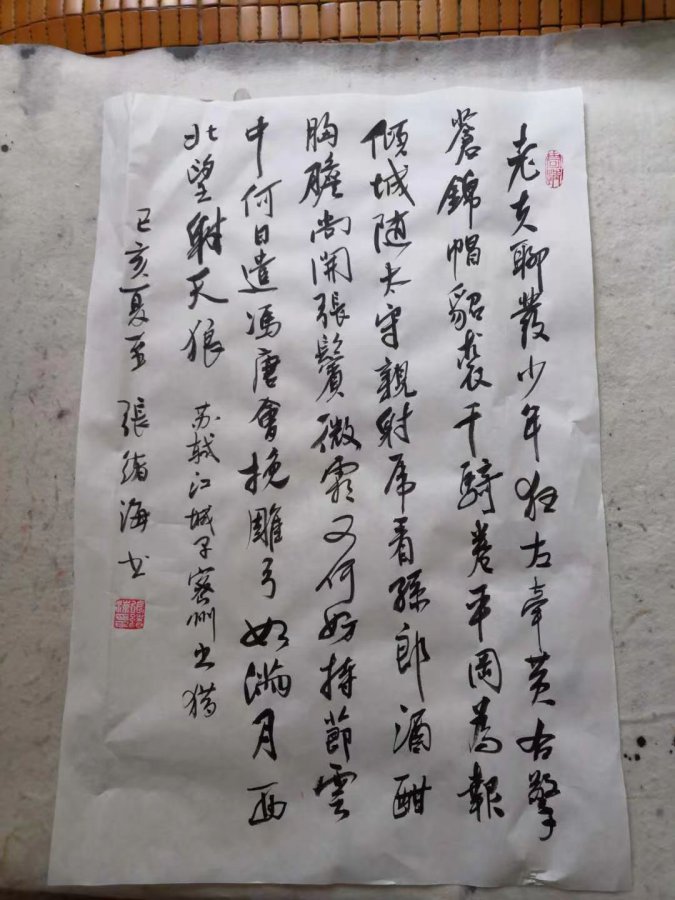 老夫聊發少年狂左牽黄右擎
蒼錦帽貂裘千騎卷平岡為報
傾城随太守親射虎看孫郎酒酣
胸膽尚開張鬢微霜又何妨持節雲
中何日遣馮唐會挽雕弓如滿月西
北望射天狼 苏轼江城子密州出猎
己亥夏至 張绪海书